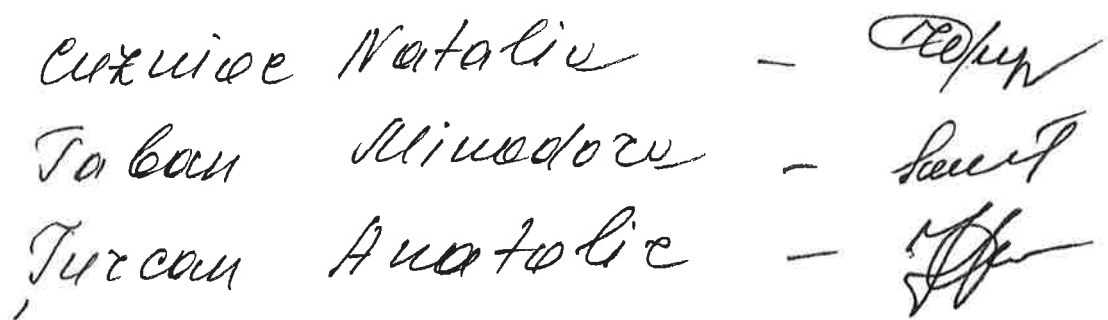 Cujniac Natalia -
Taban Minodora -
Țurcan Anatolie -